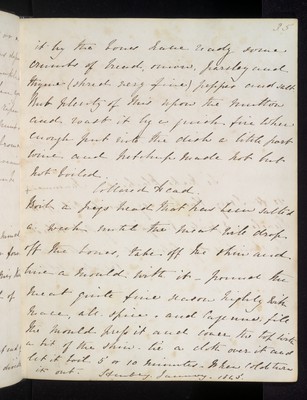 35
it by the bones have ready some
crumbs of bread, onion, parsley and
thyme (shred very fine) pepper and salt
Put plenty of this upon the mutton
and roast it by a quick fire when
enough put into the dish a little port
wine and Ketchup made hot but
not boiled.
Collared Head.
Boil a pigs head that has been salted
a week until the meat will drop
off the bones, take off the skin and
line a mould with it - pound the
meat quite fine season highly with
mace, all spice, and Cayenne, fill
the mould press it and cover the top with
a bit of the skin - tie a cloth over it and
let it boil 5 or 10 minutes - When cold turn
it out. January 1845.